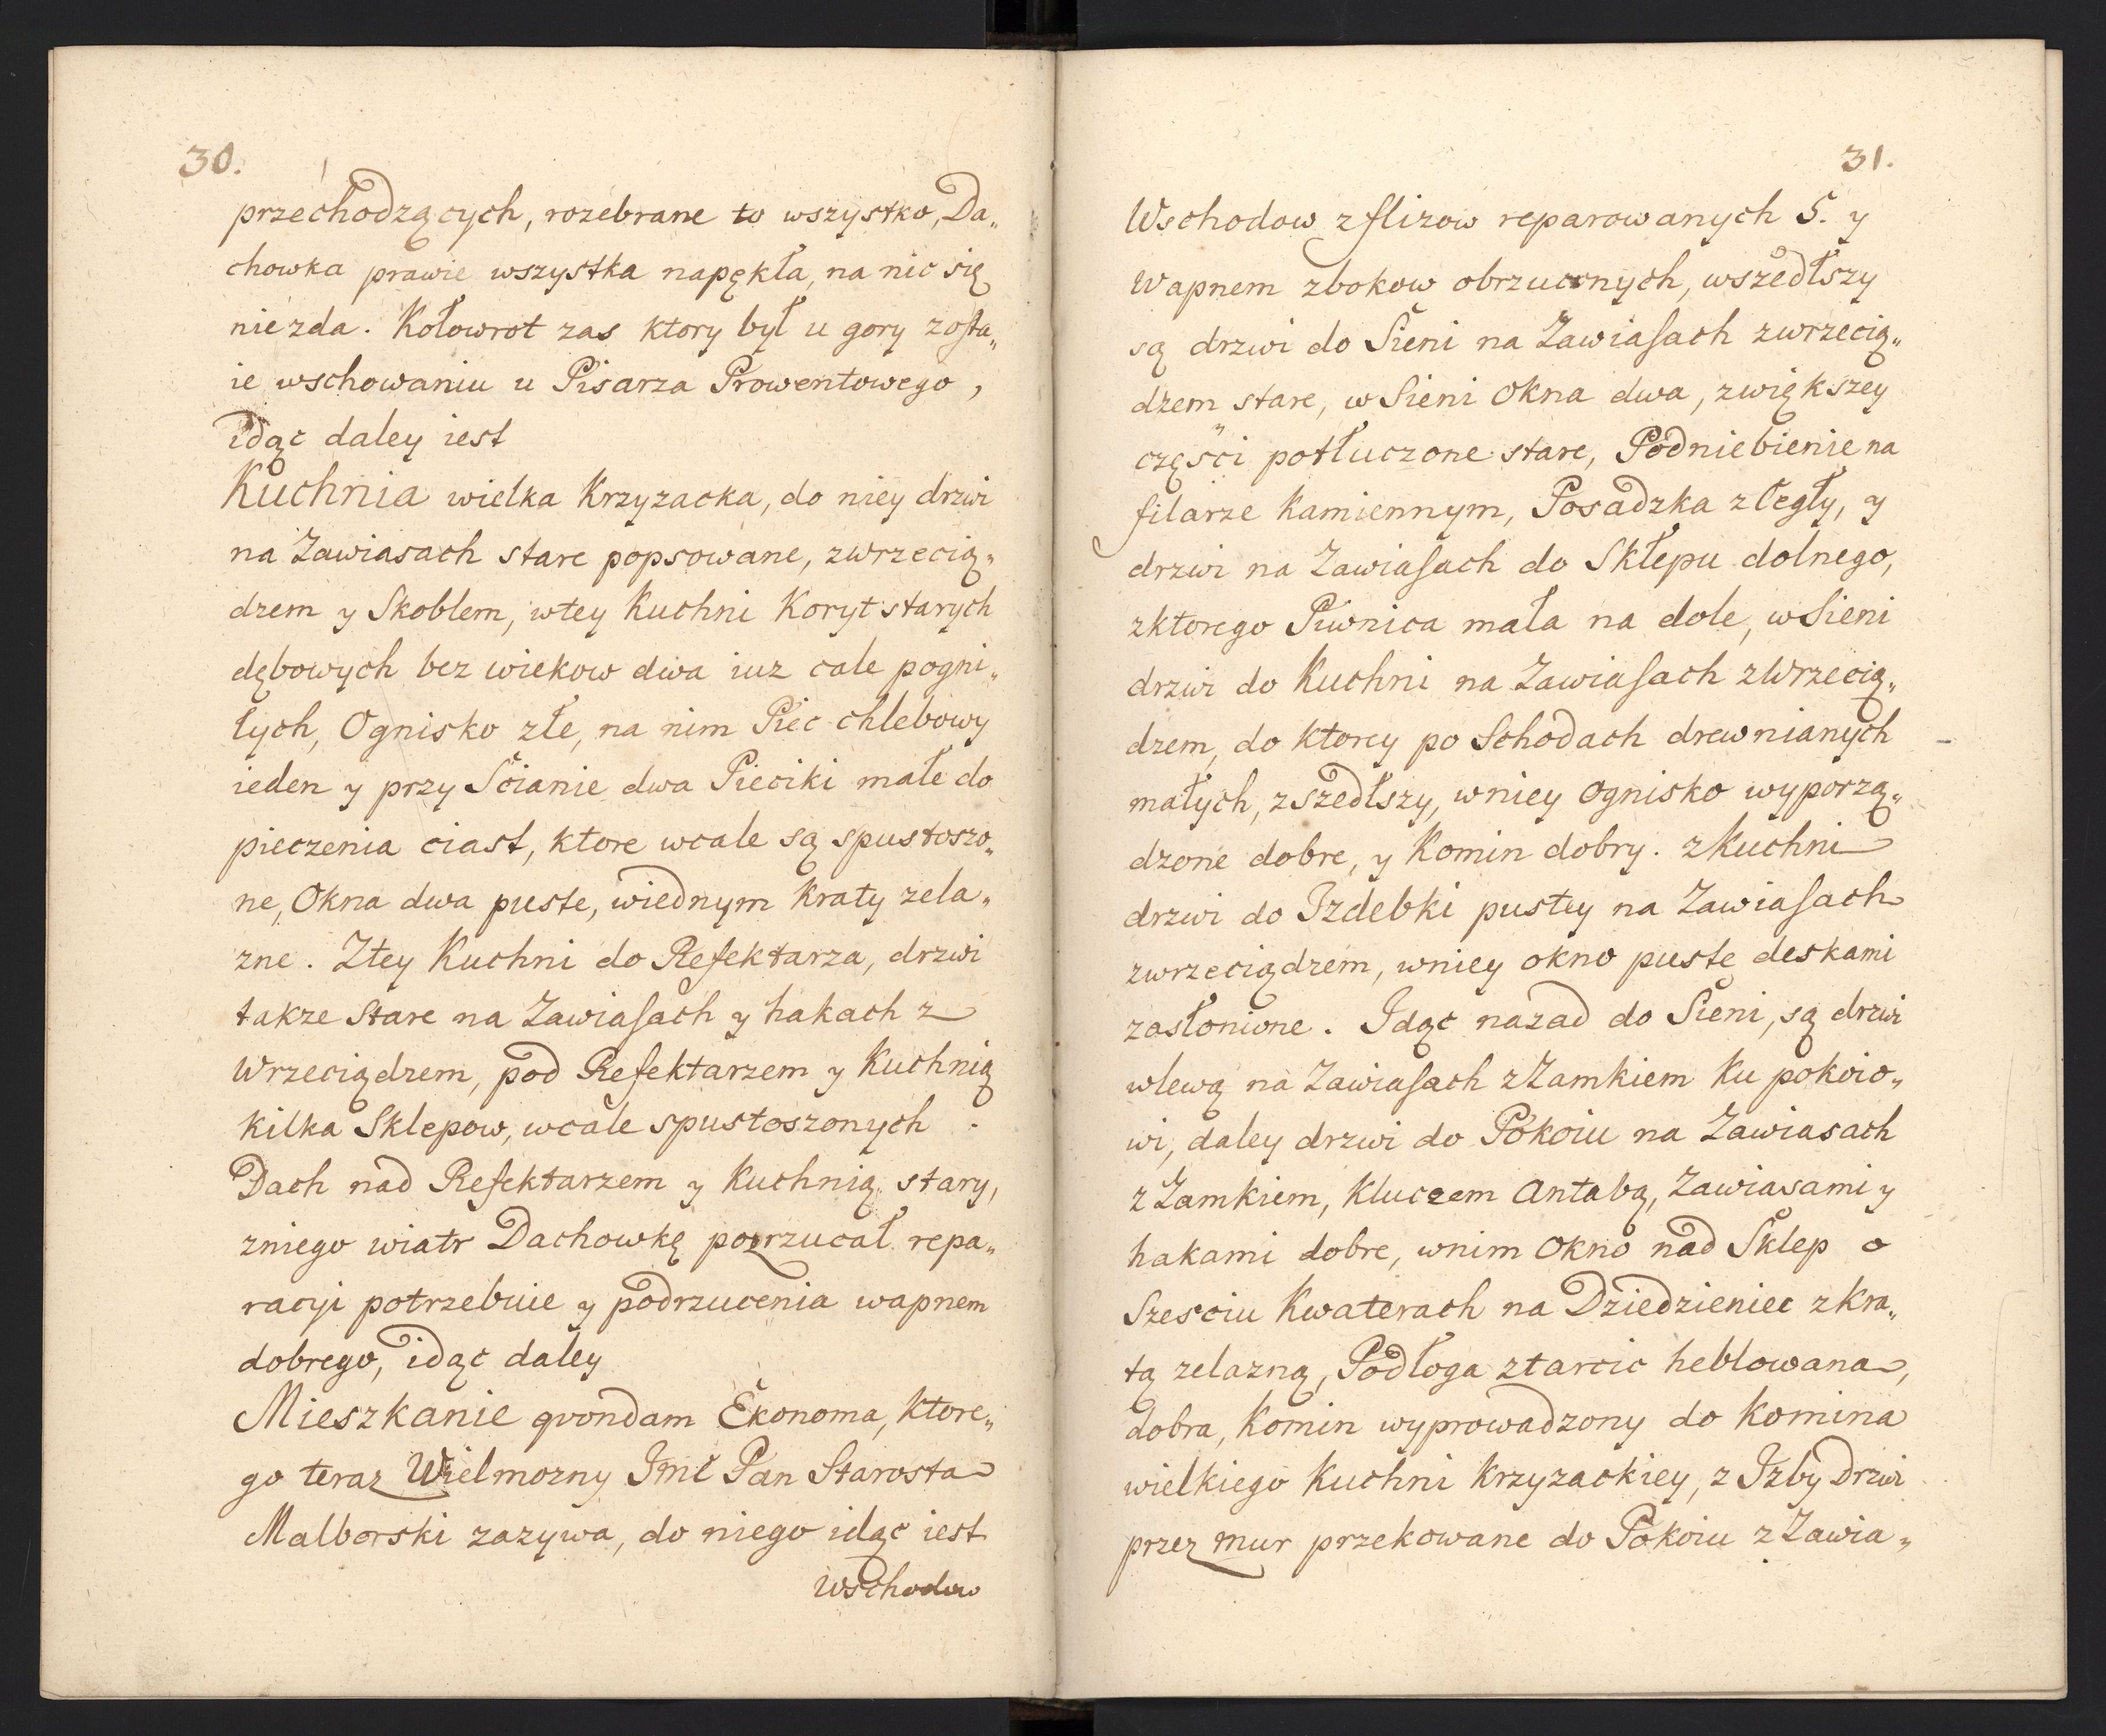 30.
przechodzących, rozebrane to wszystko, Da„
chowka prawie wszystka napękła, na nic się
niezda. Kołowrot zas ktory był u gory zosta„
ie wschowaniu u Pisarza Prowentowego,
idąc daley iest
Kuchnia wielka Krzyzacka, do niey drzwi
na Zawiasach stare popsowane, zwrzecią„
dzem y Skoblem, wtey Kuchni Koryt starych
dębowych bez wiekow dwa iuz cale pogni„
łych, Ognisko złe, na nim Piec chlebowy
ieden y przy Scianie dwa Pieciki małe do
pieczenia ciast, ktore wcale są spustoszo„
ne, Okna dwa puste, wiednym Kraty zela„
zne. Ztey Kuchni do Refektarza, drzwi
takze Stare na Zawiasach y hakach z
Wrzeciądzem, pod Refektarzem y Kuchnią
kilka Sklepow, wcale spustoszonych.
Dach nad Refektarzem y Kuchnią stary,
zniego wiatr Dachowkę pozrzucał repa„
racyi potrzebuie y podrzucenia wapnem
dobrego, idąc daley
Mieszkanie qvondam Ekonoma, Ktore„
go teraz Wielmozny Jmć Pan Starosta
Malborski zazywa, do niego idąc iest
Wschodow
31.
Wschodow zflizow reparowanych 5. y
Wapnem zbokow obrzuconych, wszedłszy
są drzwi do Sieni na Zawiasach zwrzecią„
dzem stare, w Sieni Okna dwa, zwiększey
części potłuczone stare, Podniebienie na
filarze Kamiennym, Posadzka z Cegły, y
drzwi na Zawiasach do Skłepu dolnego,
zktorego Piwnica mała na dole, wSieni
drzwi do Kuchni na Zawiasach zWrzecią„
dzem, do Ktorey po Schodach drewnianych
małych, zszedłszy, wniey Ognisko wyporzą„
dzone dobre, y Komin dobry. zKuchni
drzwi do Izdebki pustey na Zawiasach
zwrzeciądzem, wniey okno puste deskami
zasłonione. Idąc nazad do Sieni, są drzwi
wlewą na Zawiasach zZamkiem Ku pokoio„
wi, daley drzwi do Pokoiu na Zawiasach
z Zamkiem, Kluczem Antabą, Zawiasami y
hakami dobre, wnim Okno nad Sklep o
Szesciu Kwaterach na Dziedzieniec zKra„
tą zelazną, Podłoga ztarcic heblowana,
dobra, Komin wyprowadzony do Komina
wielkiego Kuchni Krzyzackiey, z Izby Drzwi
przez mur przekowane do Pokoiu z Zawia„